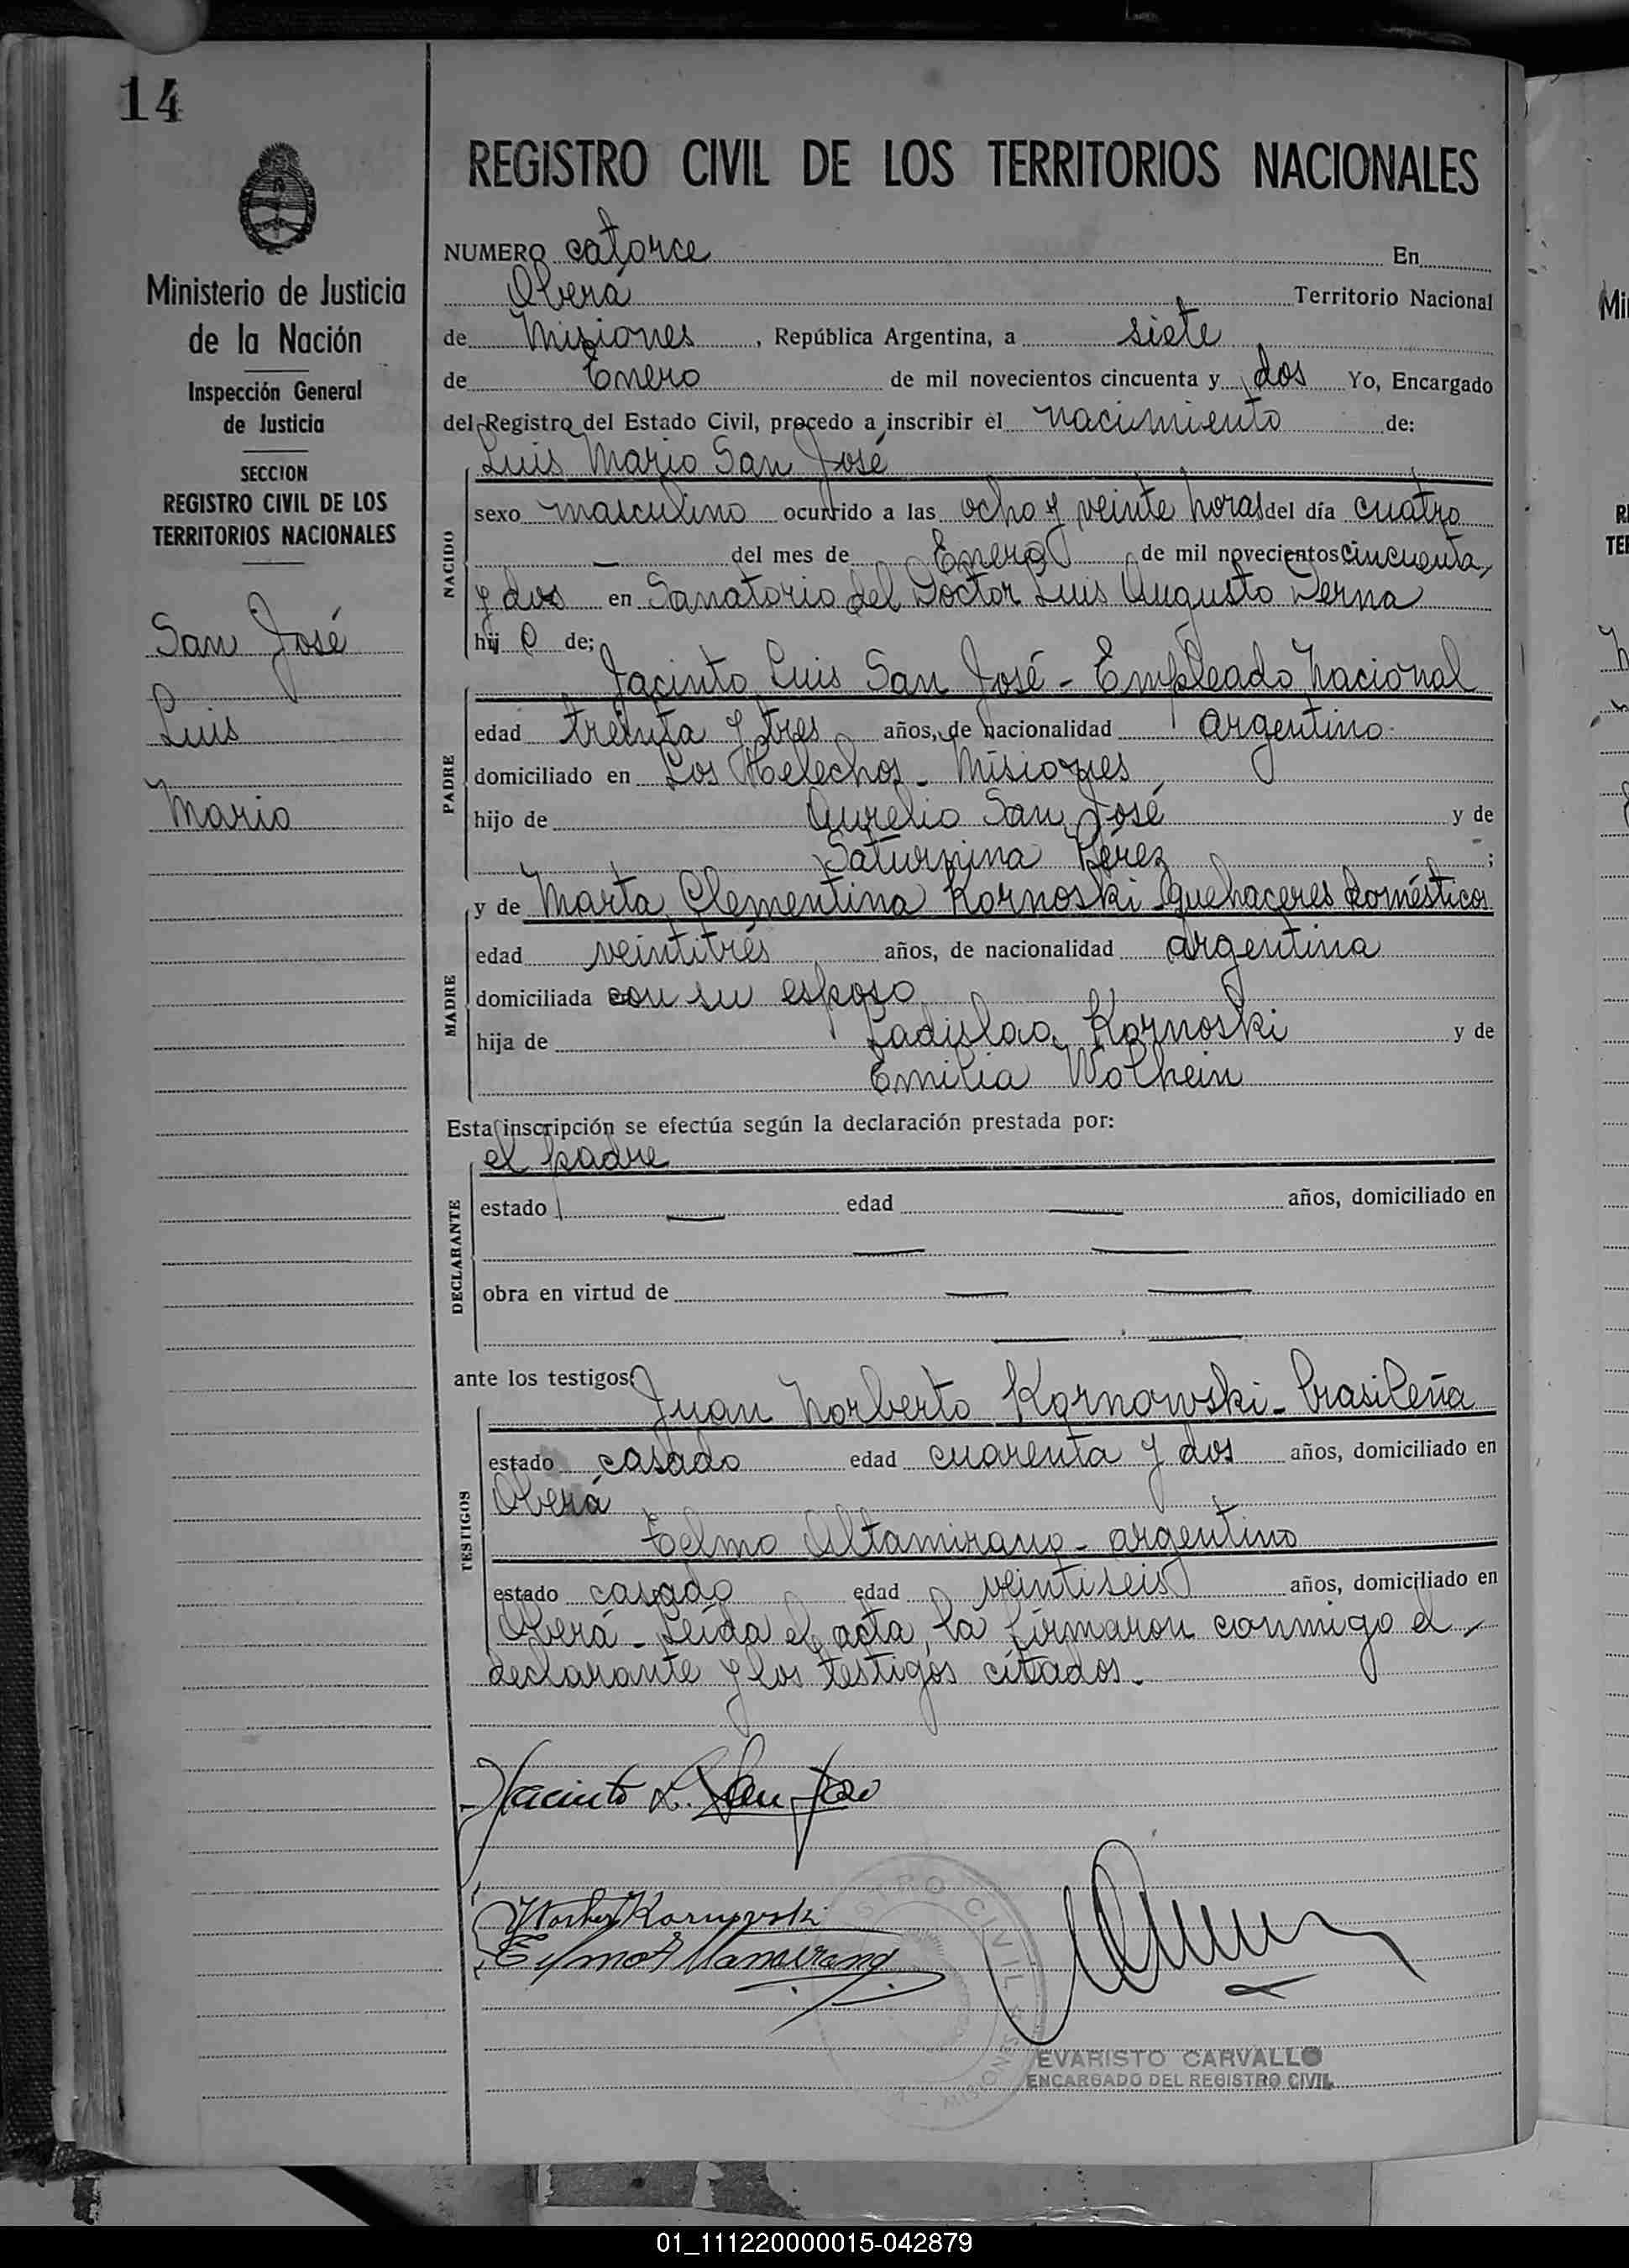 14
REGISTRO CIVIL DE LOS TERRITORIOS NACIONALES
Ministerio de Justicia
de la Nación
Inspección General
de Justicia
SECCION
REGISTRO CIVIL DE LOS
TERRITORIOS NACIONALES
San José
Luis
Mario
NUMERO catorce En
Oberá Territorio Nacional
de Misiones, República Argentina, a siete
de Enero de mil novecientos cincuenta y dos Yo, Encargado
del Registro del Estado Civil, procedo a inscribir el nacimiento de:
Luis Mario San José
NACIDO
sexo masculino ocurrido a las ocho y veinte horas del día cuatro
— del mes de Enero de mil novecientos cincuenta
y dos en Sanatorio del Doctor Luis Augusto Derna
hijo de;
Jacinto Luis San José - Empleado Nacional
PADRE
edad treinta y tres años, de nacionalidad argentino
domiciliado en Los Helechos - Misiones
hijo de Aurelio San José y de
Saturnina Pérez ;
y de Marta Clementina Kornoski - quehaceres domésticos
MADRE
edad veintitrés años, de nacionalidad argentina
domiciliada con su esposo
hija de Ladislao Kornoski y de
Emilia Wolhein
Esta inscripción se efectúa según la declaración prestada por:
el padre
DECLARANTE
estado — edad — años, domiciliado en
— —
obra en virtud de — —
— —
ante los testigos:
Juan Norberto Kornowski - brasileña
TESTIGOS
estado casado edad cuarenta y dos años, domiciliado en
Oberá
Telmo Altamirano - argentino
estado casado edad veintiseis años, domiciliado en
Oberá - Leída el acta, la firmaron conmigo el
declarante y los testigos citados.
Jacinto L. San José
Kornovski
Telmo Altamirano
REGISTRO CIVIL
MISIONES
EVARISTO CARVALLO
ENCARGADO DEL REGISTRO CIVIL
01_111220000015-042879